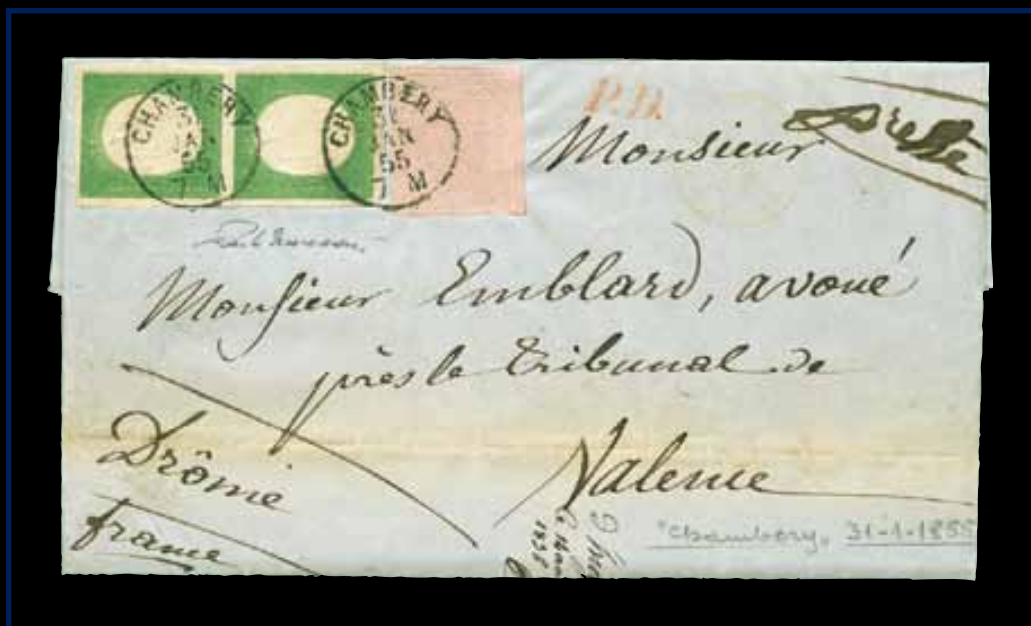 CHAMBERY
55
7 M
CHAMBERY
31
JAN
55
7 M
P.D.
presse
Monsieur
Monsieur Emblard, avoué
près le Tribunal de
Valence
Drôme
france
"Chambery, 31-1-1855